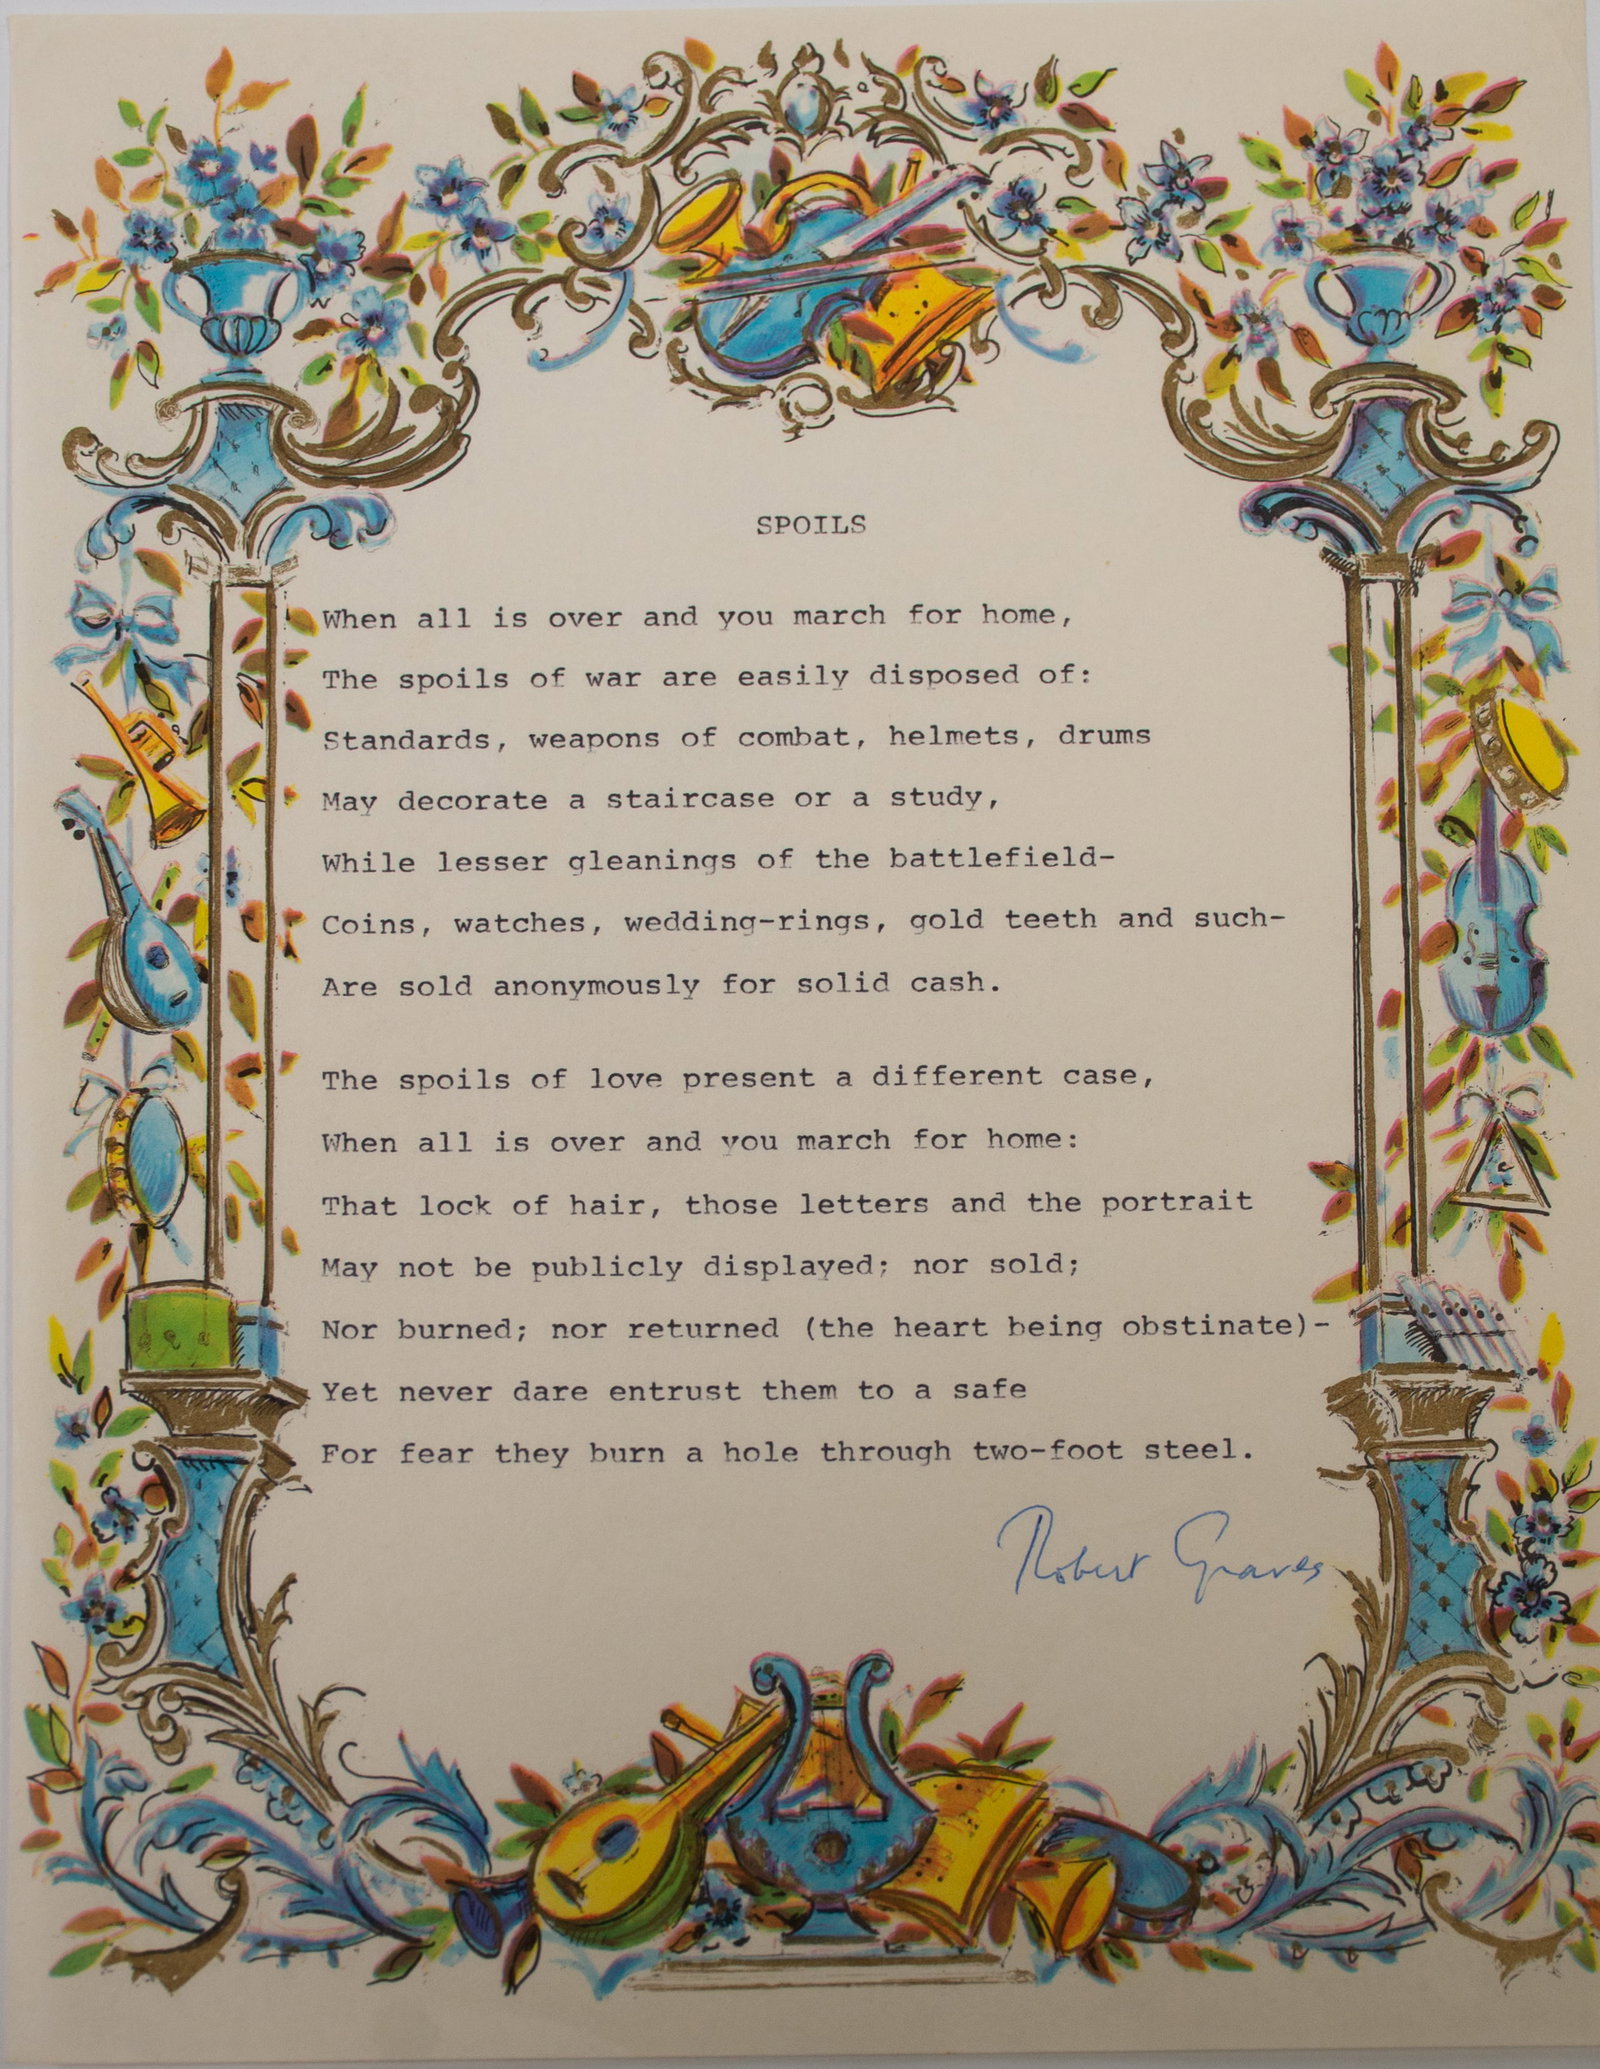 SPOILS
When all is over and you march for home,
The spoils of war are easily disposed of:
Standards, weapons of combat, helmets, drums
May decorate a staircase or a study,
While lesser gleanings of the battlefield-
Coins, watches, wedding-rings, gold teeth and such-
Are sold anonymously for solid cash.
The spoils of love present a different case,
When all is over and you march for home:
That lock of hair, those letters and the portrait
May not be publicly displayed; nor sold;
Nor burned; nor returned (the heart being obstinate)-
Yet never dare entrust them to a safe
For fear they burn a hole through two-foot steel.
Robert Graves